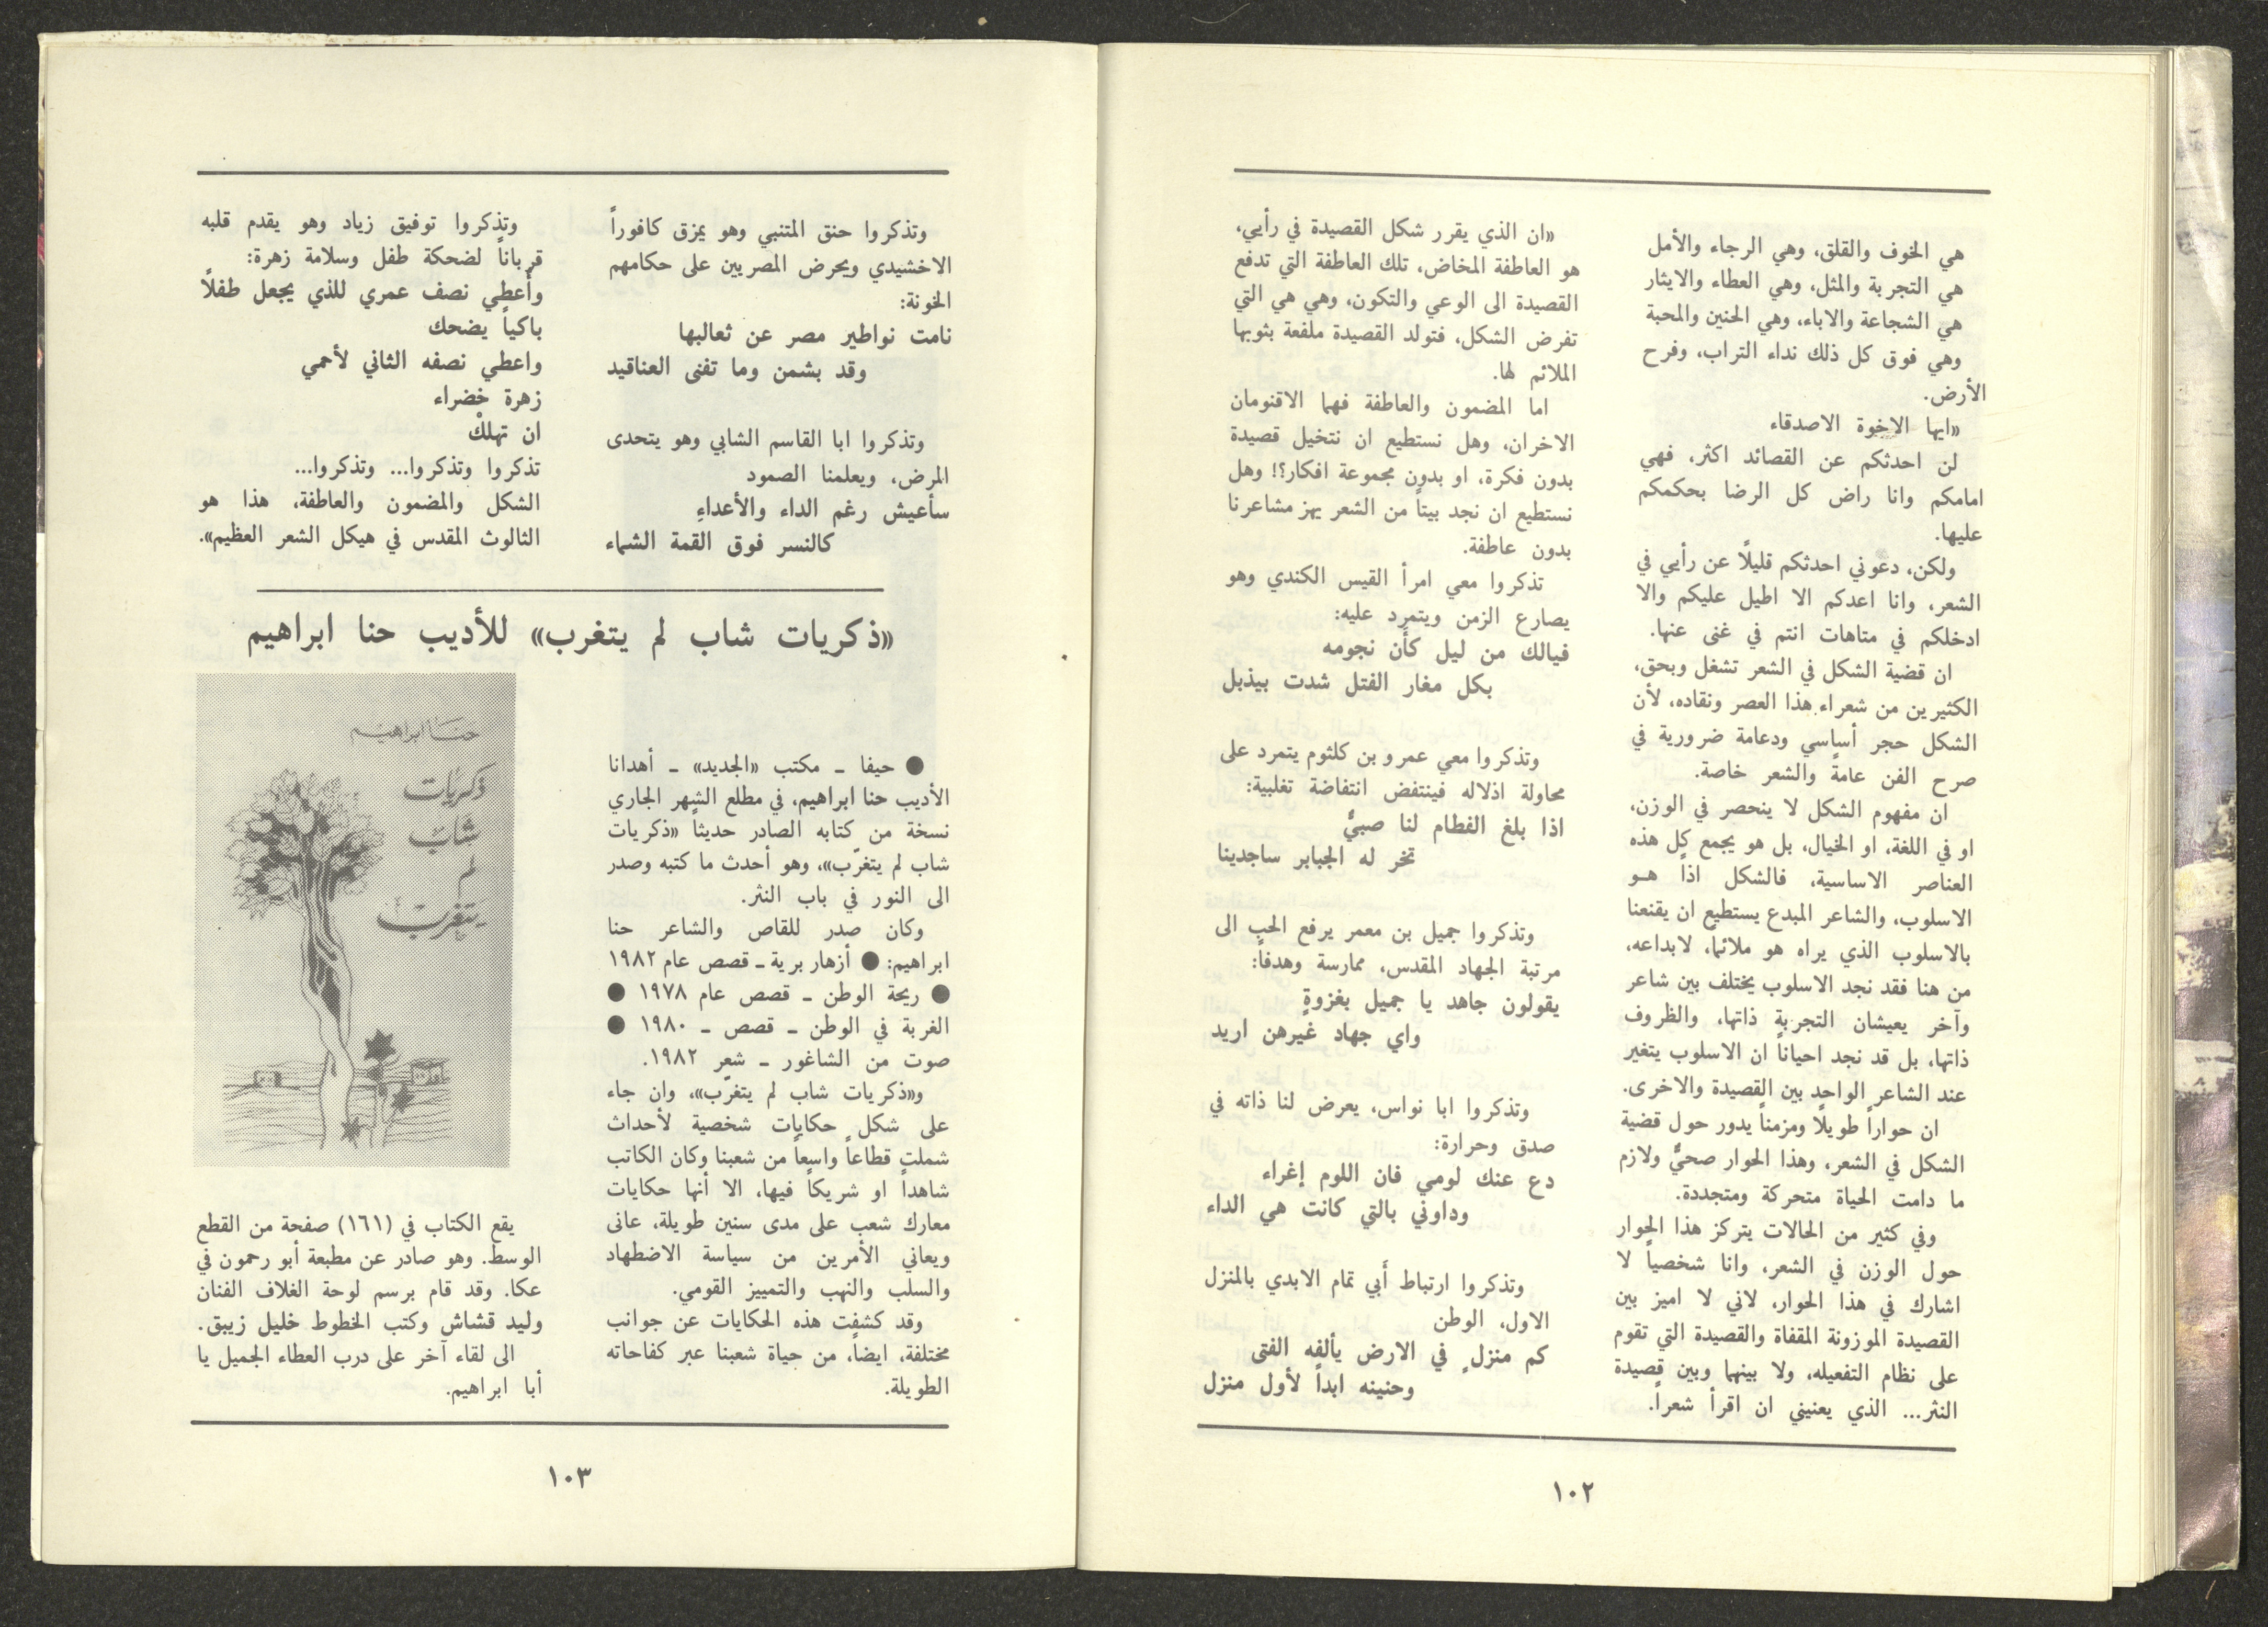 هي الخوف والقلق، وهي الرجاء والأمل
هي التجربة والمثل، وهي العطاء والايثار
هي الشجاعة والاباء، وهي الحنين والمحبة
وهي فوق كل ذلك نداء التراب، وفرح
الأرض.
«ايها الاخوة الاصدقاء
لن احدثكم عن القصائد اكثر، فهي
امامكم وانا راض كل الرضا بحكمكم
عليها.
ولكن، دعوني احدثكم قليلاً عن رأيي في
الشعر، وانا اعدكم الا اطيل عليكم والا
ادخلكم في متاهات انتم في غنى عنها.
ان قضية الشكل في الشعر تشغل وبحق،
الكثيرين من شعراء هذا العصر ونقاده، لأن
الشكل حجر أساسي ودعامة ضرورية في
صرح الفن عامةً والشعر خاصة.
ان مفهوم الشكل لا ينحصر في الوزن،
او في اللغة، او الخيال، بل هو يجمع كل هذه
العناصر الاساسية، فالشكل اذاً هو
الاسلوب، والشاعر المبدع يستطيع ان يقنعنا
بالاسلوب الذي يراه هو ملائماً، لابداعه،
من هنا فقد نجد الاسلوب يختلف بين شاعر
وآخر يعيشان التجربة ذاتها، والظروف
ذاتها، بل قد نجد احياناً ان الاسلوب يتغير
عند الشاعر الواحد بين القصيدة والاخرى.
ان حواراً طويلاً ومزمناً يدور حول قضية
الشكل في الشعر، وهذا الحوار صحيٌّ ولازم
ما دامت الحياة متحركة ومتجددة.
وفي كثير من الحالات يتركز هذا الحوار
حول الوزن في الشعر، وانا شخصياً لا
اشارك في هذا الحوار، لاني لا اميز بين
القصيدة الموزونة المقفاة والقصيدة التي تقوم
على نظام التفعيله، ولا بينهما وبين قصيدة
النثر... الذي يعنيني ان اقرأ شعراً.
«ان الذي يقرر شكل القصيدة في رأيي،
هو العاطفة المخاض، تلك العاطفة التي تدفع
القصيدة الى الوعي والتكون، وهي هي التي
تفرض الشكل، فتولد القصيدة ملفعة بثوبها
الملائم لها.
اما المضمون والعاطفة فهما الاقنومان
الاخران، وهل نستطيع ان نتخيل قصيدة
بدون فكرة، او بدون مجموعة افكار؟! وهل
نستطيع ان نجد بيتاً من الشعر يهز مشاعرنا
بدون عاطفة.
تذكروا معي امرأ القيس الكندي وهو
يصارع الزمن ويتمرد عليه:
فيالك من ليل كأن نجومه
بكل مغار الفتل شدت بيذبل
وتذكروا معي عمرو بن كلثوم يتمرد على
محاولة اذلاله فينتفض انتفاضة تغلبية:
اذا بلغ الفطام لنا صبيٌّ
تخر له الجبابر ساجدينا
وتذكروا جميل بن معمر يرفع الحب الى
مرتبة الجهاد المقدس، ممارسة وهدفاً:
يقولون جاهد يا جميل بغزوةٍ
واي جهاد غيرهن اريد
وتذكروا ابا نواس، يعرض لنا ذاته في
صدق وحرارة:
دع عنك لومي فان اللوم إغراء
وداوني بالتي كانت هي الداء
وتذكروا ارتباط أبي تمام الابدي بالمنزل
الاول، الوطن
كم منزلٍ في الارض يألفه الفتى
وحنينه ابداً لأول منزل
١٠٢
وتذكروا حنق المتنبي وهو يمزق كافوراً
الاخشيدي ويحرض المصريين على حكامهم
الخونة:
نامت نواطير مصر عن ثعالبها
وقد بشمن وما تفنى العناقيد
وتذكروا ابا القاسم الشابي وهو يتحدى
المرض، ويعلمنا الصمود
سأعيش رغم الداء والأعداءِ
كالنسر فوق القمة الشماء
وتذكروا توفيق زياد وهو يقدم قلبه
قرباناً لضحكة طفل وسلامة زهرة:
وأعطي نصف عمري للذي يجعل طفلاً
باكياً يضحك
واعطي نصفه الثاني لأحمي
زهرة خضراء
ان تهلكْ
تذكروا وتذكروا... وتذكروا...
الشكل والمضمون والعاطفة، هذا هو
الثالوث المقدس في هيكل الشعر العظيم».
«ذكريات شاب لم يتغرب» للأديب حنا ابراهيم
● حيفا ـ مكتب «الجديد» ـ أهدانا
الأديب حنا ابراهيم، في مطلع الشهر الجاري
نسخة من كتابه الصادر حديثاً «ذكريات
شاب لم يتغرّب»، وهو أحدث ما كتبه وصدر
الى النور في باب النثر.
وكان صدر للقاص والشاعر حنا
ابراهيم: ● أزهار برية ـ قصص عام ١٩٨٢
● ريحة الوطن ـ قصص عام ١٩٧٨ ●
الغربة في الوطن ـ قصص ـ ١٩٨٠ ●
صوت من الشاغور ـ شعر ١٩٨٢.
و«ذكريات شاب لم يتغرّب»، وان جاء
على شكل حكايات شخصية لأحداث
شملت قطاعاً واسعاً من شعبنا وكان الكاتب
شاهداً او شريكاً فيها، الا أنها حكايات
معارك شعب على مدى سنين طويلة، عانى
ويعاني الأمرين من سياسة الاضطهاد
والسلب والنهب والتمييز القومي.
وقد كشفت هذه الحكايات عن جوانب
مختلفة، ايضاً، من حياة شعبنا عبر كفاحاته
الطويلة.
حنا ابراهيم
ذكريات
شاب
لم
يتغرب
يقع الكتاب في (١٦١) صفحة من القطع
الوسط. وهو صادر عن مطبعة أبو رحمون في
عكا. وقد قام برسم لوحة الغلاف الفنان
وليد قشاش وكتب الخطوط خليل زيبق.
الى لقاء آخر على درب العطاء الجميل يا
أبا ابراهيم.
١٠٣